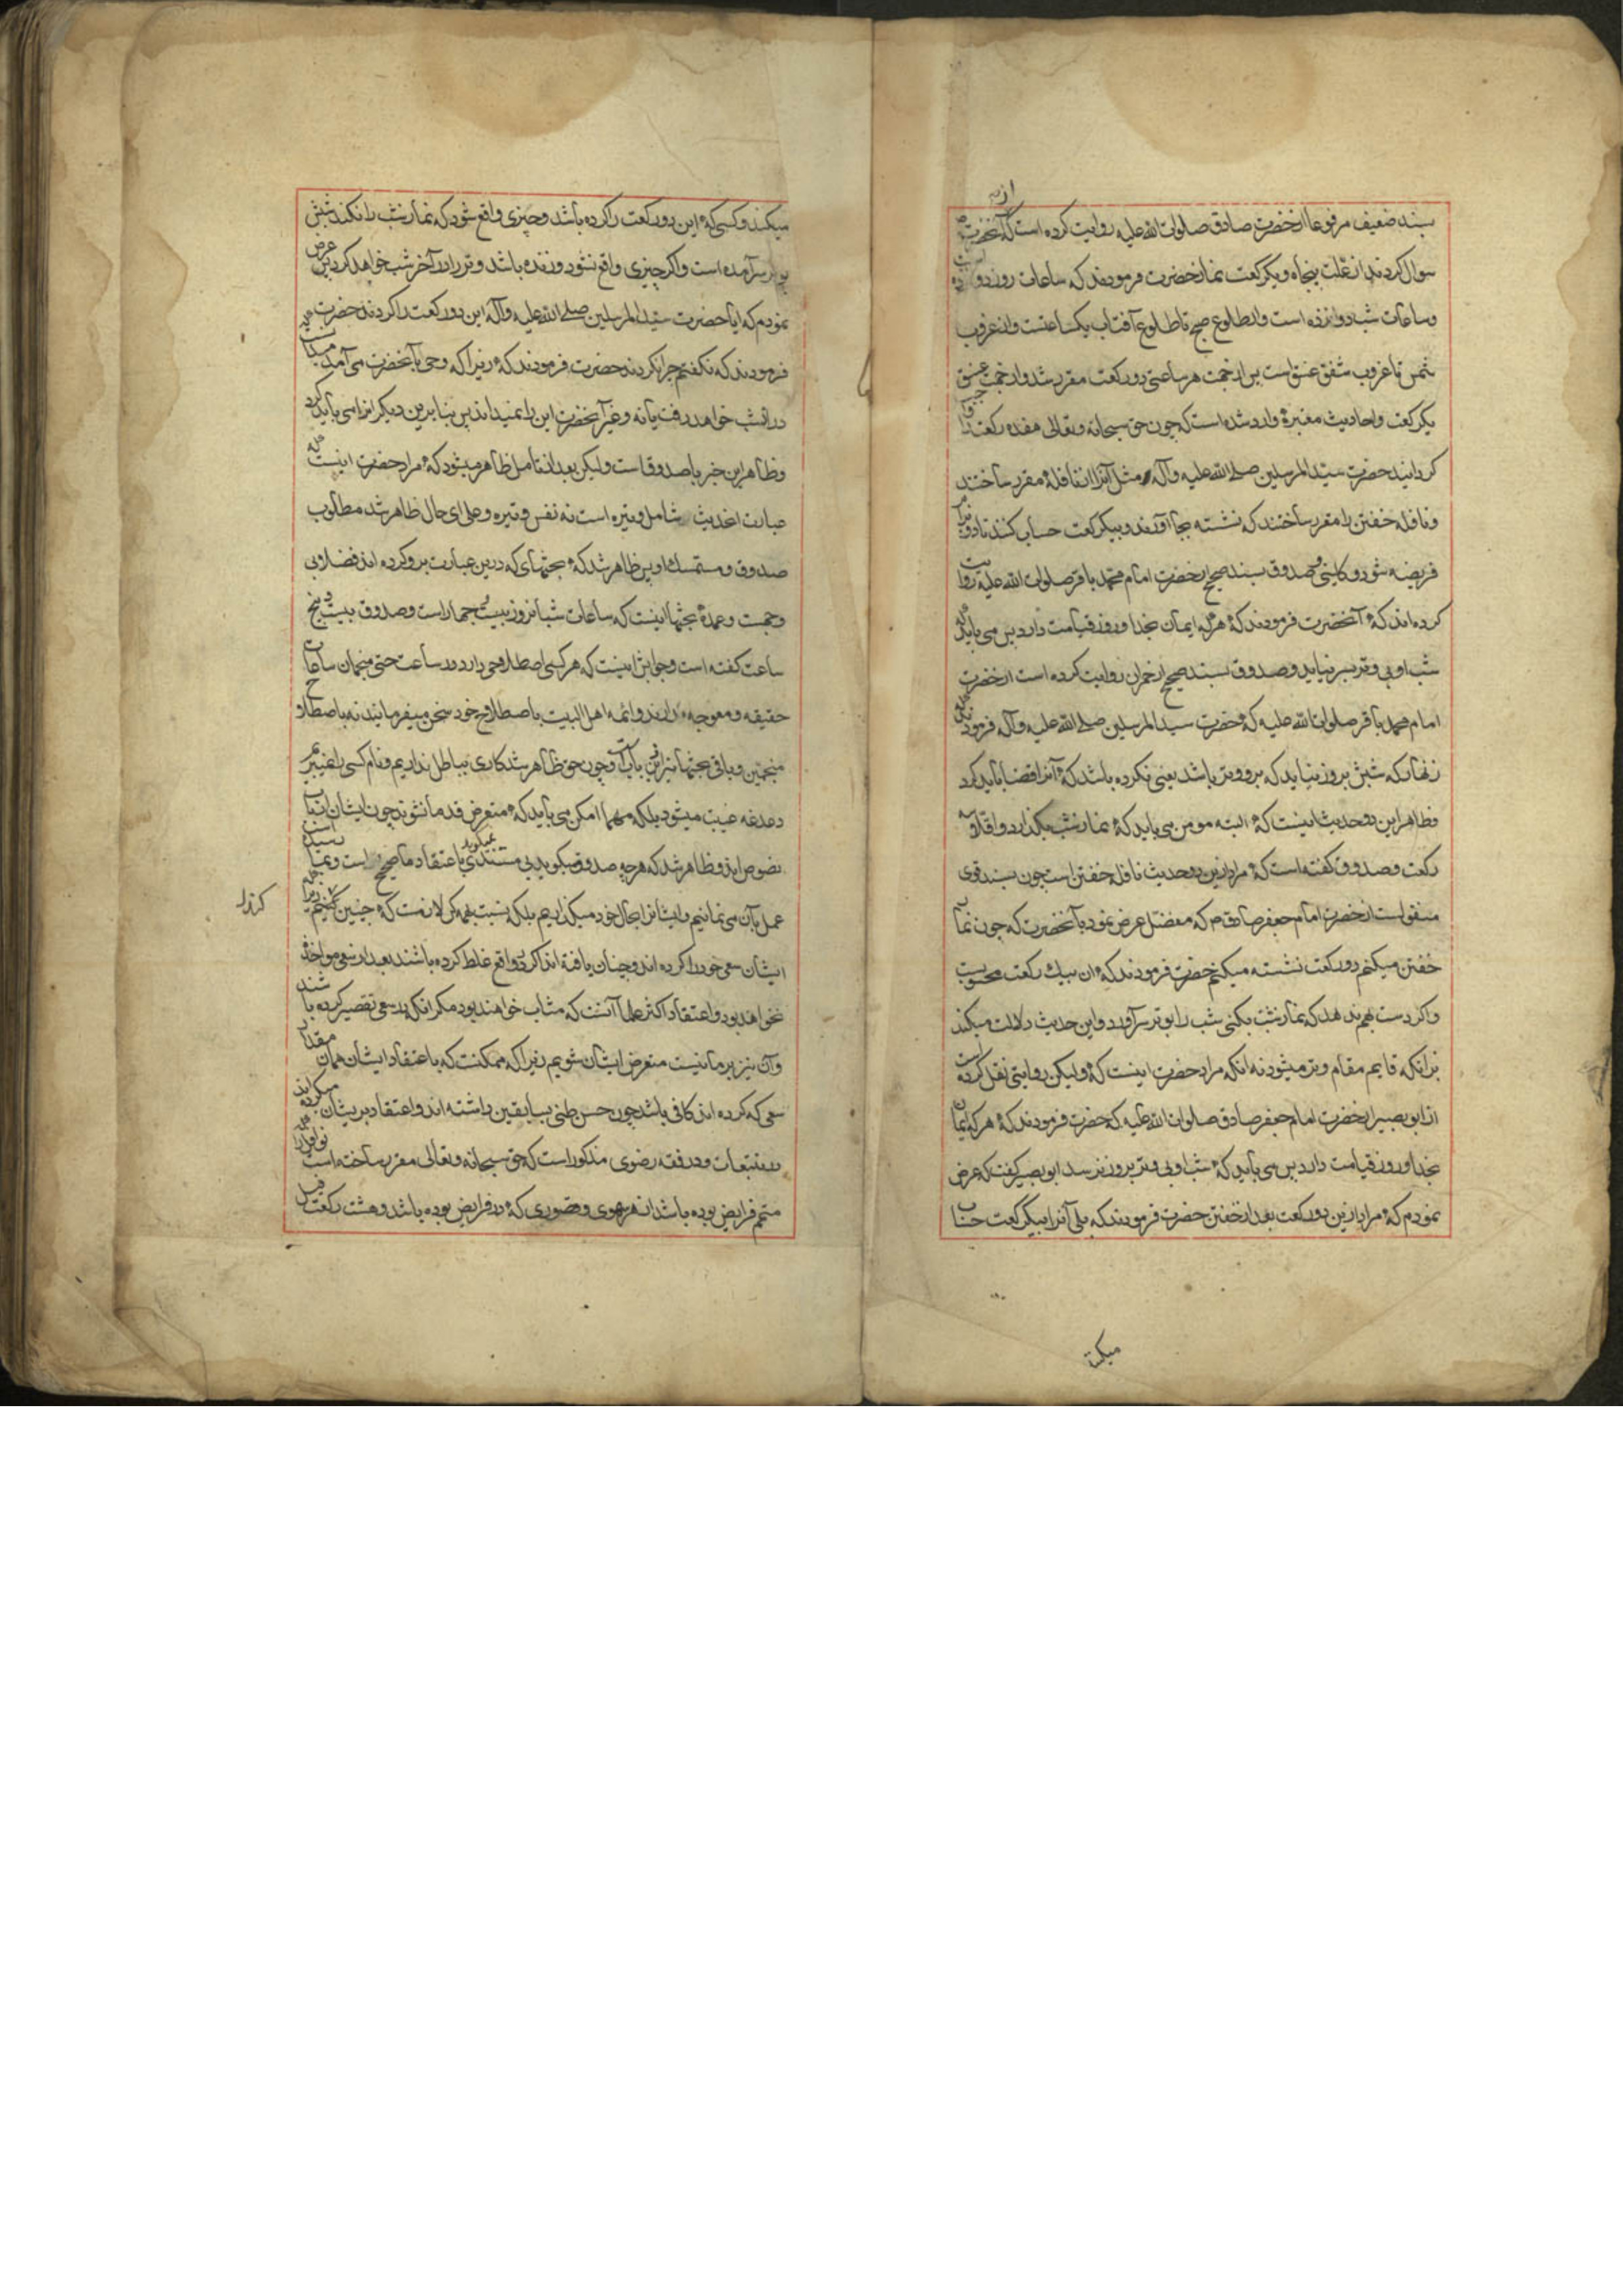 بسند ضعیف مرفوعا از حضرت صادق صلوات الله علیه روایت کرده است که از آنحضرت
سؤال کردند از علت پنجاه و یکرکعت نماز حضرت فرمودند که ساعات روز دوازده
وساعات شب دوازده است واز طلوع صبح تا طلوع آفتاب یکساعتست واز غروب
شمس تا غروب شفق غسق است پس از جهت هر ساعتی دو رکعت مقرر شد واز جهت غسق
یکرکعت واحادیث معتبره وارد شده است که چون حق سبحانه وتعالی هفده رکعت را
کردانید حضرت سید المرسلین صلی الله علیه وآله مثل آنرا از نافله مقرر ساختند
ونافله خفتن را مقرر ساختند که نشسته بجا آورند وبیکرکعت حساب کنند تا دو برابر
فریضه شود وکلینی وصدوق بسند صحیح از حضرت امام محمد باقر صلوات الله علیه روایت
کرده‌اند که آنحضرت فرمودند که هر که ایمان بخدا وروز قیامت دارد پس می باید که
شب او بی وتر بسر نیاید وصدوق بسند صحیح از حمران روایت کرده است از حضرت
امام محمد باقر صلوات الله علیه که حضرت سید المرسلین صلی الله علیه وآله فرمودند
زنهار که شبش بروز نیاید که برو وتر باشد یعنی نکرده باشد که آنرا قضا باید کرد
وظاهر این دو حدیث اینست که البته مومن می باید که نماز شب بکذارد واقلا سه
رکعت وصدوق کفته است که مراد ازین دو حدیث نافله خفتن است چون بسند قوی
منقولست از حضرت امام جعفر صادق ع م که مفضل عرض نمود بآنحضرت که چون نماز
خفتن میکنم دو رکعت نشسته میکنم حضرت فرمودند که آن بیک رکعت محسوبست
واکر دست بهم ندهد که نماز شب بکنی شب را بوتر بسر آورد واین حدیث دلالت میکند
برانکه قایم مقام وتر میشود نه انکه مراد حضرت اینست که ولیکن روایتی نقل کرده است
از ابو بصیر از حضرت امام جعفر صادق صلوات الله علیه که حضرت فرمودند که هر که ایمان
بخدا وروز قیامت دارد پس می باید که شب او بی وتر بروز نرسد ابو بصیر کفت که عرض
نمودم که مراد ازین دو رکعت بعد از خفتن حضرت فرمودند که بلی آنرا بیکرکعت حساب
میکند
میکند وکسی که این دو رکعت را کرده باشد وچیزی واقع شود که نماز شب را نکند شبش
بوتر سر آمده است واکر چیزی واقع نشود وزنده باشد وتر را در آخر شب خواهد کرد پس عرض
نمودم که ایا حضرت سید المرسلین صلی الله علیه وآله این دو رکعت را کردند حضرت
فرمودند که نه کفتم چرا نکردند حضرت فرمودند که زیرا که وحی بآنحضرت می آمد
در انشب خواهد رفت یا نه وغیر آنحضرت این را نمیدانند پس بنابرین دیکرانرا می باید کرد
وظاهر این خبر با صدوق است ولیکن بعد از تامل ظاهر میشود که مراد حضرت اینست که
عبارت احدیث شامل وتیره است نه نفس وتیره وعلی ای حال ظاهر شد مطلوب
صدوق ومستمسک او پس ظاهر شد که بحثهای که درین عبارت برو کرده اند فضلا بی
وجهست وعمدهٔ بحثها اینست که ساعات شبانروز بیست وچهار است وصدوق بیست وپنج
ساعت کفته است وجوابش اینست که هر کسی اصطلاحی دارد در ساعت حتی منجمان ساعات
حقیقه ومعوجه دارند وائمه اهل البیت باصطلاح خود سخن میفرمایند نه باصطلاح
منجمین وباقی بحثها نیز ازین بابست وچون حق ظاهر شد کاری بباطل نداریم ونام کسی را نمیبریم
دغدغه غیبت میشود بلکه مهما امکن می باید که متعرض قدما نشوند چون ایشان ارباب
نصوص اند وظاهر شد که هر چه صدوق میکوید بی مستندی نمیکوید باعتقاد ما صحیح است
عمل بآن می نمائیم وایشانرا بحال خود میکذاریم بلکه نسبت بهمه کس لازمست که چنین کنیم زیرا که
ایشان سعی خود را کرده اند وچنان یافته اند اکر در واقع غلط کرده باشند بعد از سعی مواخذ
نخواهد بود واعتقاد اکثر علما آنست که مثاب خواهند بود مکر انکه در سعی تقصیر کرده باشند
وآن نیز بر ما نیست متعرض ایشان شویم زیرا که ممکنست که باعتقاد ایشان همان مقدار
سعی که کرده اند کافی باشد چون حسن ظنی بسابقین داشته اند واعتقاد بر ایشان میکرده اند
در تتبعات ودر فقه رضوی مذکور است که حق سبحانه وتعالی مقرر ساخته است نوافل را
متمم فرایض بوده باشد از هر سهوی وقصوری که در فرایض بوده باشد وهشت رکعت قبل